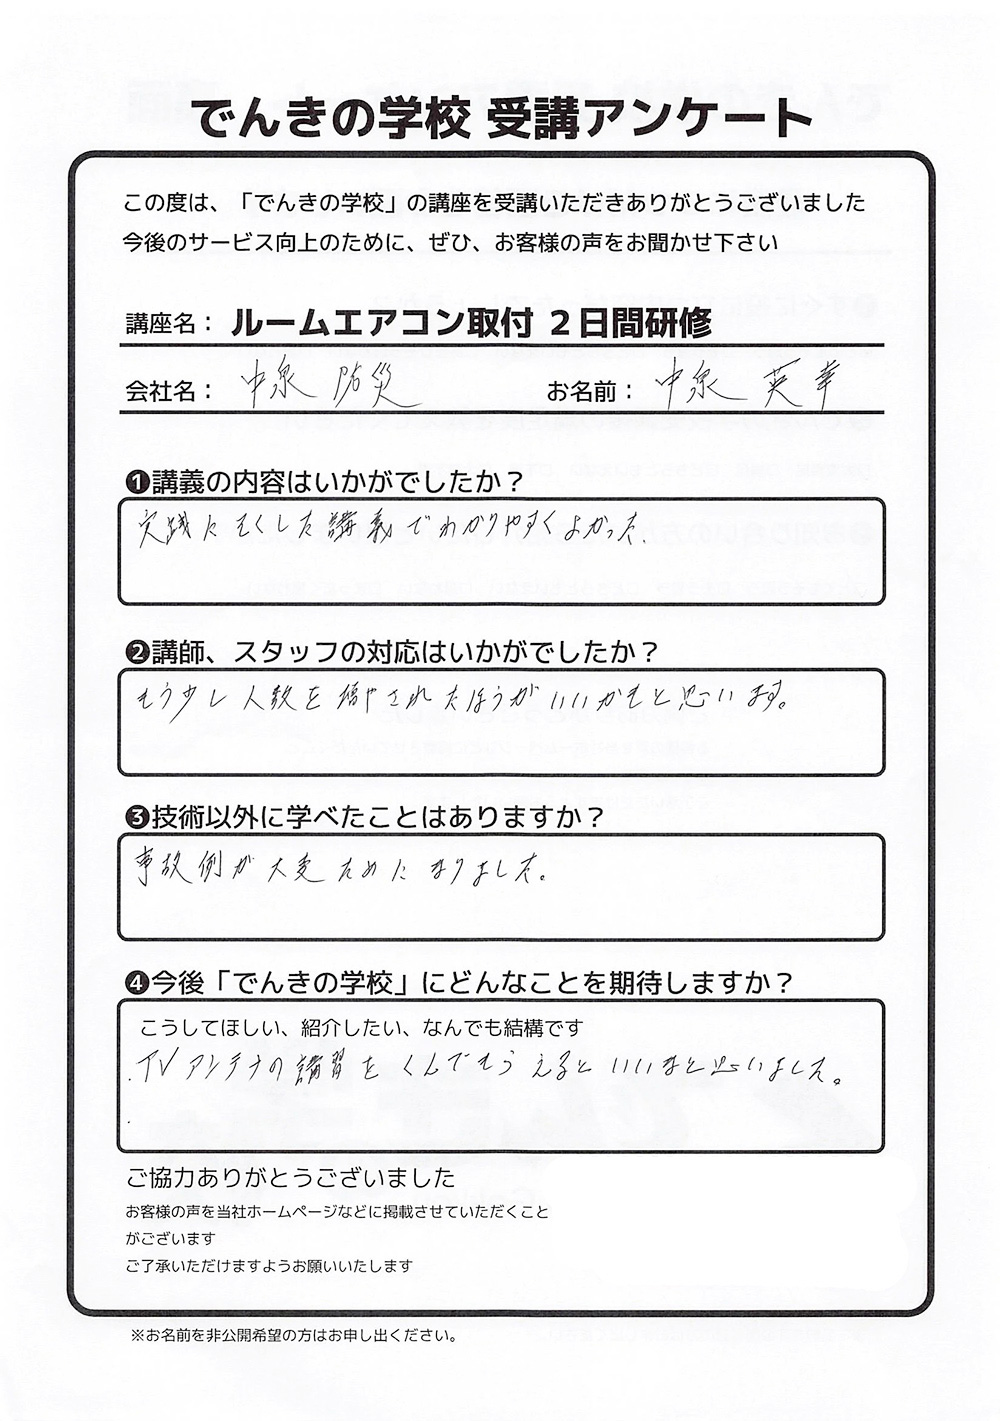 でんきの学校 受講アンケート
この度は、「でんきの学校」の講座を受講いただきありがとうございました
今後のサービス向上のために、ぜひ、お客様の声をお聞かせ下さい
講座名： ルームエアコン取付 ２日間研修
会社名： 中泉 防災 お名前： 中泉 英華
❶講義の内容はいかがでしたか？
実践にそくした講義でわかりやすくよかった.
❷講師、スタッフの対応はいかがでしたか？
もう少し人数を増やされたほうがいいかもと思います。
❸技術以外に学べたことはありますか？
事故例が大変ためになりました。
❹今後「でんきの学校」にどんなことを期待しますか？
こうしてほしい、紹介したい、なんでも結構です
TVアンテナの講習をくんでもらえるといいなと思いました。
ご協力ありがとうございました
お客様の声を当社ホームページなどに掲載させていただくこと
がございます
ご了承いただけますようお願いいたします
※お名前を非公開希望の方はお申し出ください。